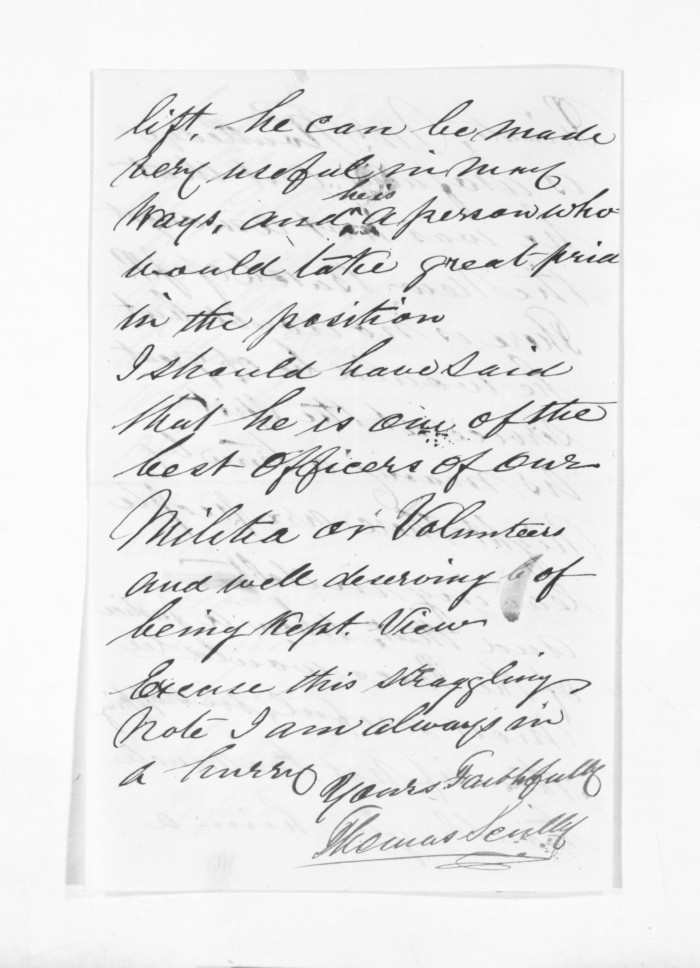 lift, he can be made
very useful, in many
ways, and he is a person who
would take great prid
in the position
I should have said
that he is one of the
best officers of our
Militia or Volunteers
and well deserving of
being kept. View
Excuse this straggling
Note I am always in
a hurry
Yours Faithfully
Thomas Scully